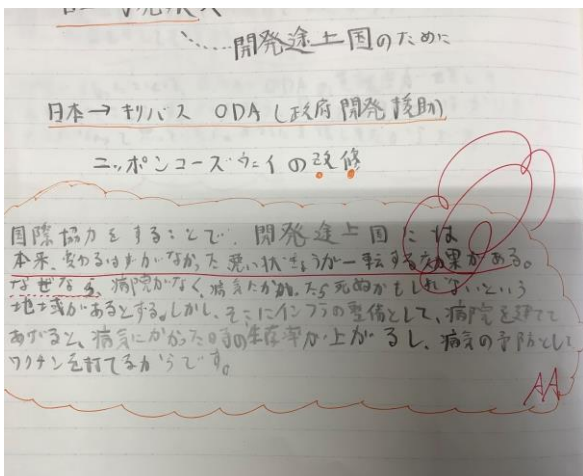 開発途上国のために
日本→キリバス ODA(政府開発援助)
ニッポンコーズウェイの改修
国際協力をすることで、開発途上国には
本来、変わるはずがなかった悪い状きょうが一転する効果がある。
なぜなら、病院がなく、病気にかかったら死ぬかもしれないという
地域があるとする。しかし、そこにインフラの整備として、病院を建てて
あげると、病気にかかった時の生存率が上がるし、病気の予防として
ワクチンを打てるからです。
AA